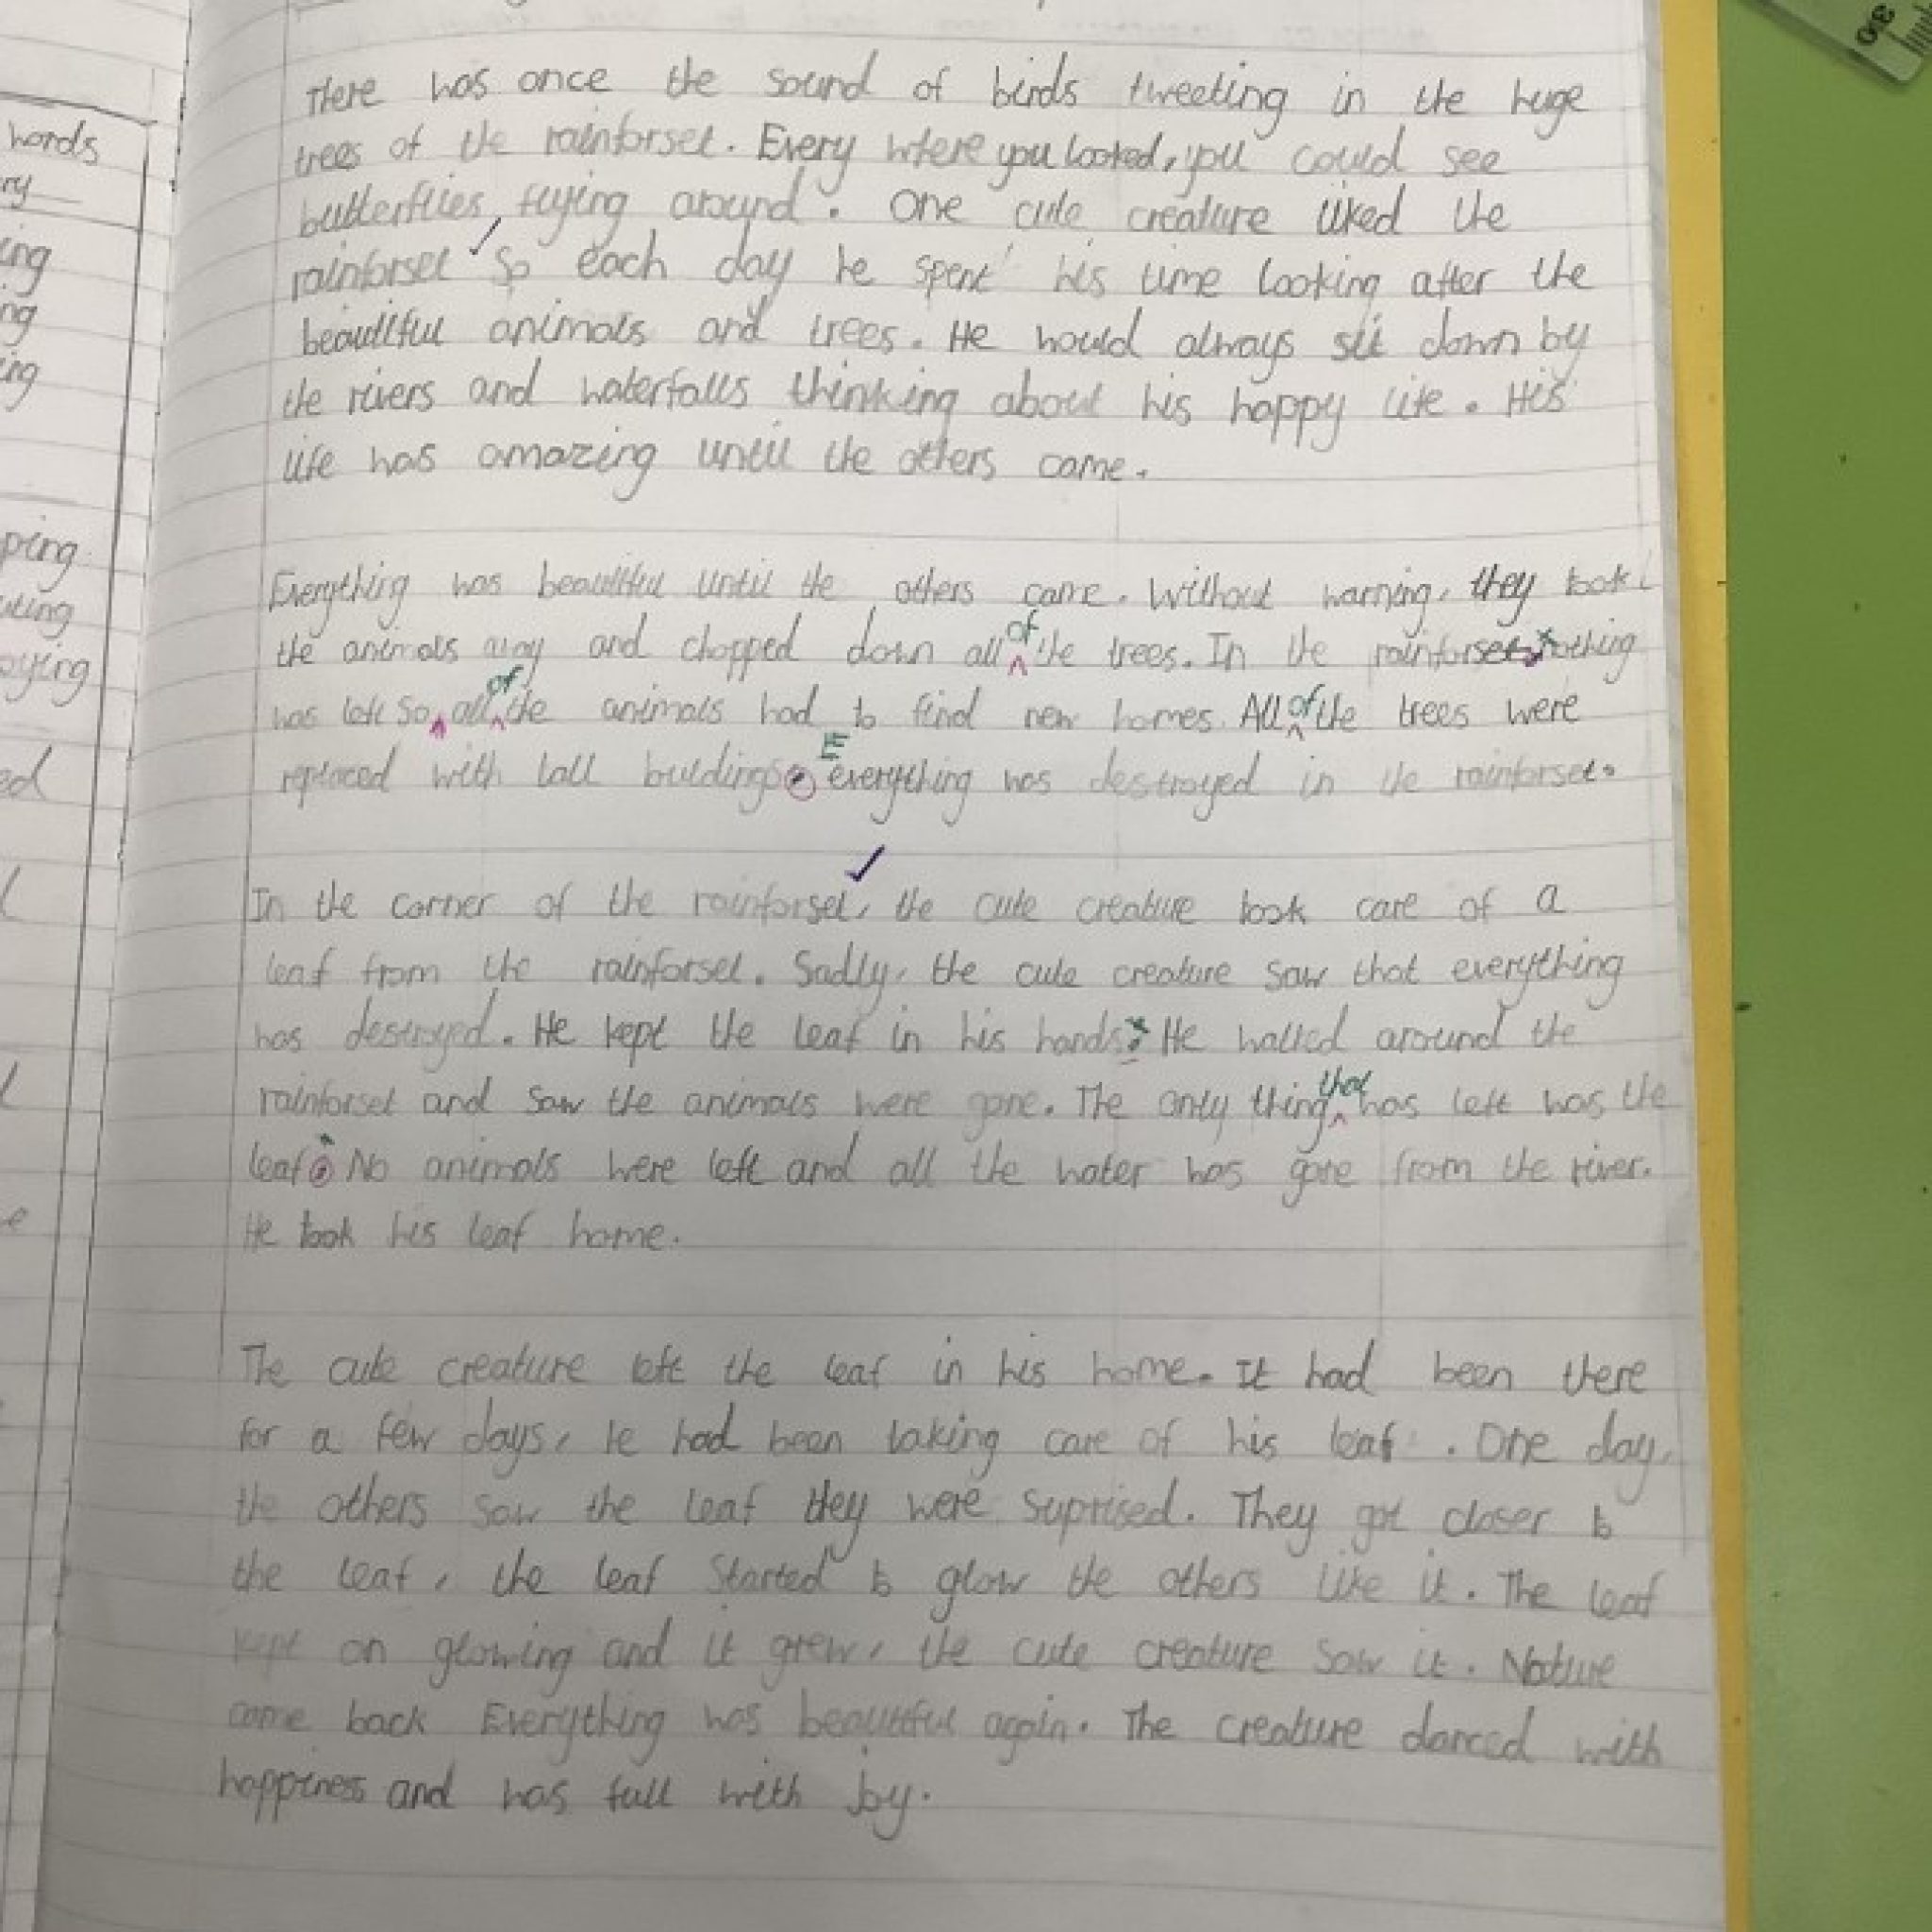 words
ry
ing
ng
ing
ping
uting
oying
ed
There was once the sound of birds tweeting in the huge
trees of the rainforset. Every where you looked, you could see
butterflies, flying around. One cute creature liked the
rainforset so each day he spent his time looking after the
beautiful animals and trees. He would always sit down by
the rivers and waterfalls thinking about his happy life. His
life was amazing until the others came.
Everything was beautiful until the others came. Without warning, they took
the animals away and chopped down all of the trees. In the rainforset, nothing
was left so all of the animals had to find new homes. All of the trees were
replaced with tall buildings. E everything was destroyed in the rainforset.
In the corner of the rainforset, the cute creature took care of a
leaf from the rainforset. Sadly, the cute creature saw that everything
was destroyed. He kept the leaf in his hands. He walked around the
rainforset and saw the animals were gone. The only thing that was left was the
leaf. No animals were left and all the water was gone from the river.
He took his leaf home.
The cute creature left the leaf in his home. It had been there
for a few days, he had been taking care of his leaf. One day,
the others saw the leaf they were suprised. They got closer to
the leaf, the leaf started to glow the others like it. The leaf
kept on glowing and it grew, the cute creature saw it. Nature
came back Everything was beautiful again. The creature danced with
happiness and was full with joy.
30